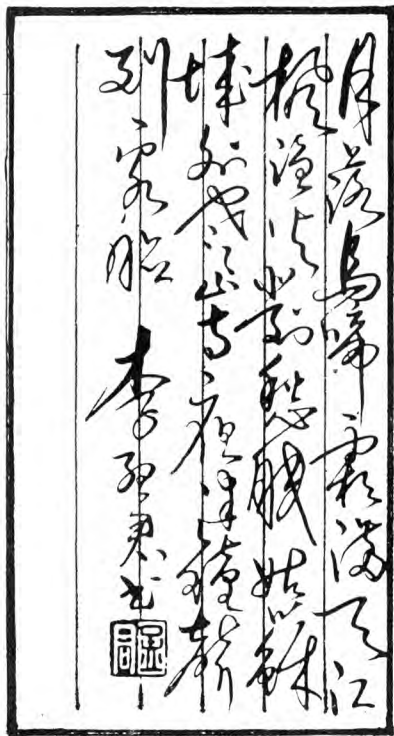 月落烏啼霜滿天江
楓漁火對愁眠姑蘇
城外寒山寺夜半鐘聲
到客船 李 書